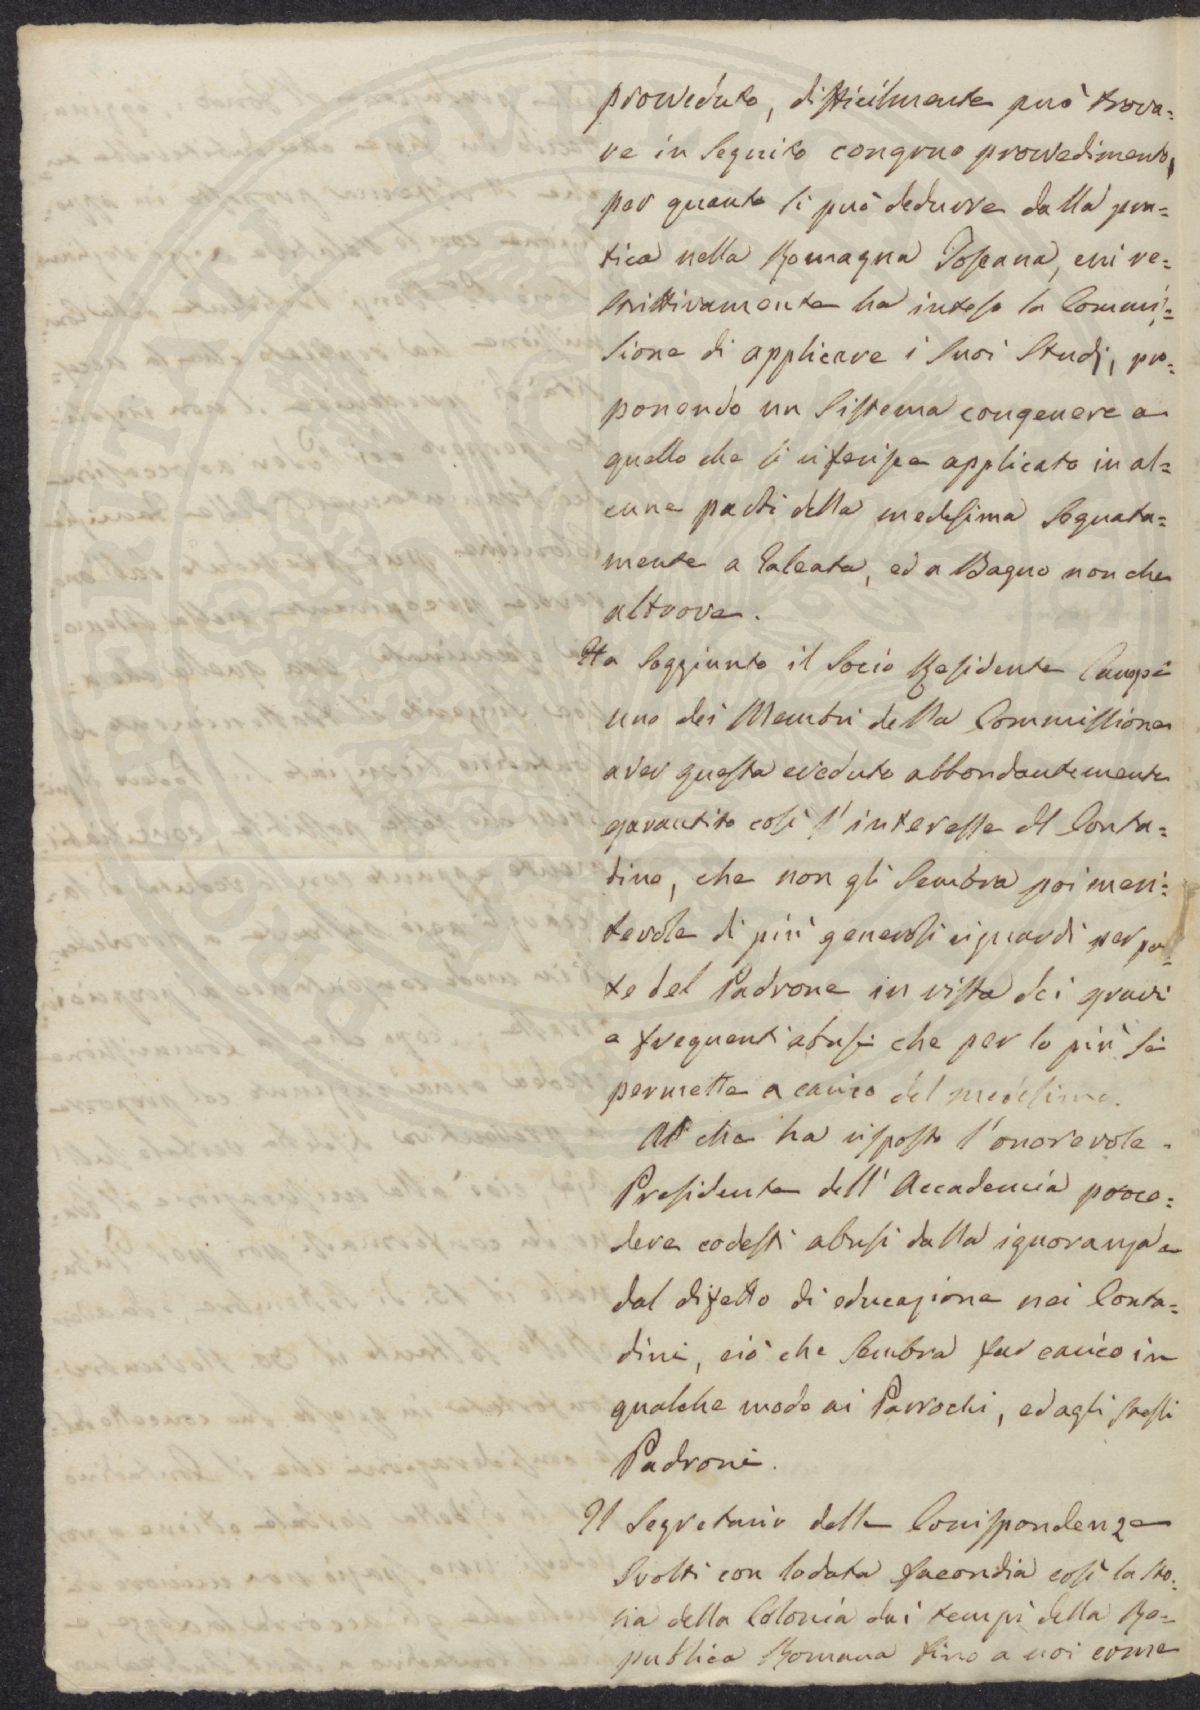 provveduto, difficilmente può trova=
re in Seguito congruo provvedimento,
per quanto si può dedurre dalla pra=
tica nella Romagna Toscana, cui re=
strittivamente ha inteso la Commis=
sione di applicare i Suoi Studj, pro=
ponendo un Sistema congenere a
quello che si riferisce applicato in al=
cune parti della medesima Segnata=
mente a Galeata, ed a Bagno non che
altrove.
Ha Soggiunto il Socio Residente
uno dei Membri della Commissione
aver questa creduto abbondantemente
garantito così l'interesse del Conta=
dino, che non gli Sembra poi meri=
tevole di più generosi riguardi per par=
te del Padrone in vista dei gravi
e frequenti abusi che per lo più si
permette a carico del medesimo.
Al che ha risposto l'onorevole
Presidente dell'Accademia proce=
dere codesti abusi dalla ignoranza e
dal difetto di educazione nei Conta=
dini, ciò che Sembra far carico in
qualche modo ai Parrochi, ed agli stessi
Padroni.
Il Segretario delle Corrispondenze
Svolti con lodata facondia così la Sto=
ria della Colonia dai tempi della Re=
pubblica Romana fino a noi come